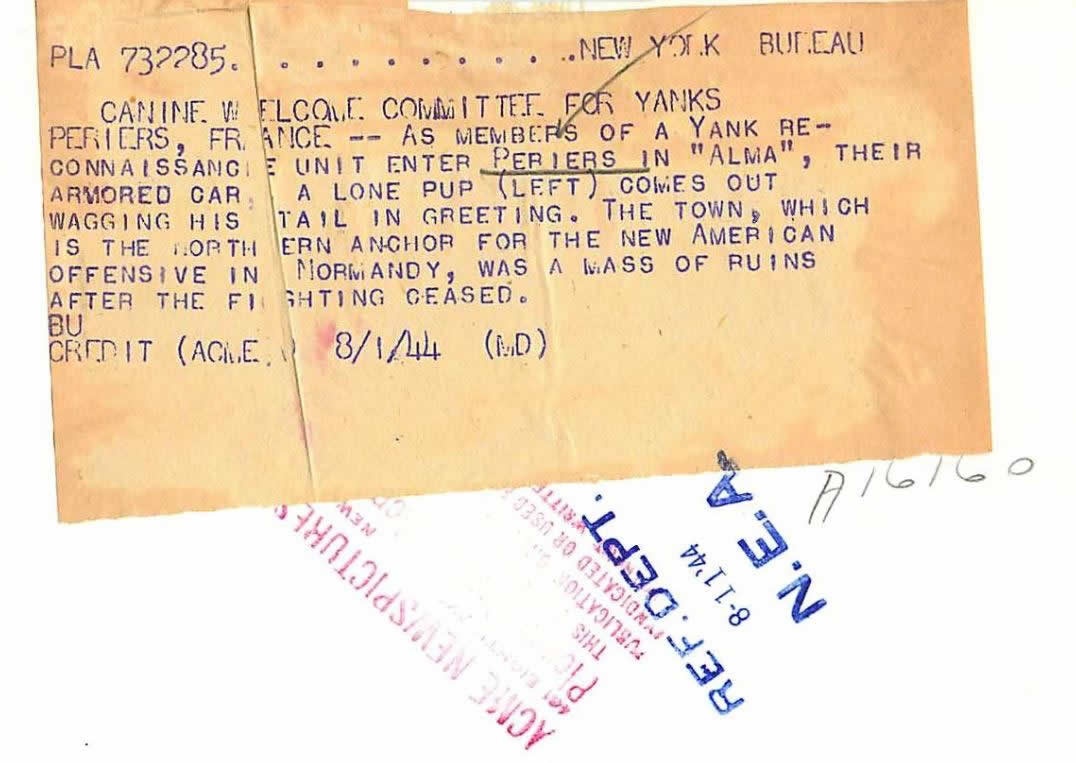 PLA 732285. . . . . . . . . . . ..NEW YORK BUREAU
CANINE WELCOME COMMITTEE FOR YANKS
PERIERS, FRANCE -- AS MEMBERS OF A YANK RE-
CONNAISSANCE UNIT ENTER PERIERS IN "ALMA", THEIR
ARMORED CAR, A LONE PUP (LEFT) COMES OUT
WAGGING HIS TAIL IN GREETING. THE TOWN, WHICH
IS THE NORTHERN ANCHOR FOR THE NEW AMERICAN
OFFENSIVE IN NORMANDY, WAS A MASS OF RUINS
AFTER THE FIGHTING CEASED.
BU
CREDIT (ACME) 8/1/44 (MD)
A16160
ACME NEWSPICTURES
NEW
THIS
PUBLICATION
SYNDICATED OR USED
WRITTE
REF. DEPT.
8-11'44
N.E.A.